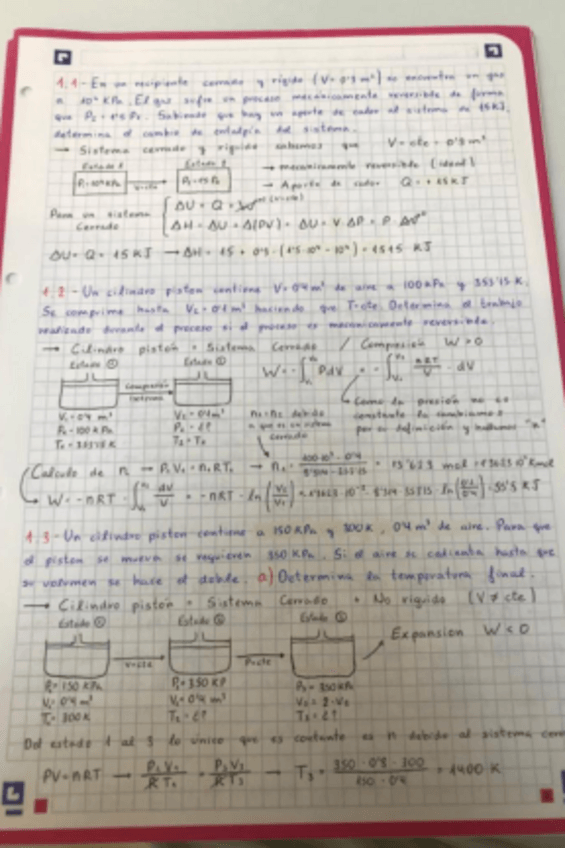 1.1- En un recipiente cerrado y rígido (V= 0'3 m³) se encuentra un gas
a 10² KPa. El gas sufre un proceso mecánicamente reversible de forma
que P₂ = 1'5 P₁. Sabiendo que hay un aporte de calor al sistema de 15KJ,
determina el cambio de entalpía del sistema.
→ Sistema cerrado y rígido sabemos que V= cte = 0'3 m³
Estado 1 Estado 2 → mecánicamente reversible (ideal)
P₁=10²KPa V=cte P₂=1'5 P₁ → Aporte de calor Q= +15KJ
Para un sistema ΔU = Q + W (V=cte)
Cerrado ΔH = ΔU + Δ(PV) = ΔU + V·ΔP + P·ΔV
ΔU= Q= 15 KJ → ΔH= 15 + 0'3·(1'5·10² - 10²) =
1.2- Un cilindro piston contiene V= 0'4 m³ de aire a 100KPa y 353'15 K.
Se comprime hasta V₂= 0'1 m³ haciendo que T=cte. Determina el trabajo
realizado durante el proceso si el proceso es mecánicamente reversible.
→ Cilindro pistón = Sistema Cerrado / Compresión W>0
Estado ① Estado ② W= -∫PdV = -∫ nRT/V · dV
Compresión
V₁= 0'4 m³ V₂= 0'1 m³ n₁=n₂ debido
P₁= 100 KPa P₂= ¿? a que es un sistema
T₁= 353'15 K T₂= T₁ cerrado
Como la presión no es
constante la cambiamos
por su definición y hallamos "n"
Calculo de n → P₁V₁= n₁RT₁ → n₁= 100·10³·0'4 / 8'314·353'15 = 13'623 mol = 1'3623·10⁻² Kmol
→ W= -nRT·∫ dV/V = -nRT·ln(V₂/V₁) =
1.3- Un cilindro piston contiene a 150KPa y 300K, 0'4 m³ de aire. Para que
el piston se mueva se requieren 350 KPa. Si el aire se calienta hasta que
su volumen se hace el doble. a) Determina la temperatura final.
→ Cilindro pistón = Sistema Cerrado + No rígido (V ≠ cte)
Estado ① Estado ② Estado ③ Expansión W<0
V=cte P=cte
P₁= 150 KPa P₂= 350 KP P₃= 350KPa
V₁= 0'4 m³ V₂= 0'4 m³ V₃= 2·V₂
T₁= 300K T₂= ¿? T₃= ¿?
Del estado 1 al 3 lo único que es constante es n debido al sistema
PV=nRT → P₁V₁/RT₁ = P₃V₃/RT₃ → T₃= 350·0'8·300 / 150·0'4 = 1400 K